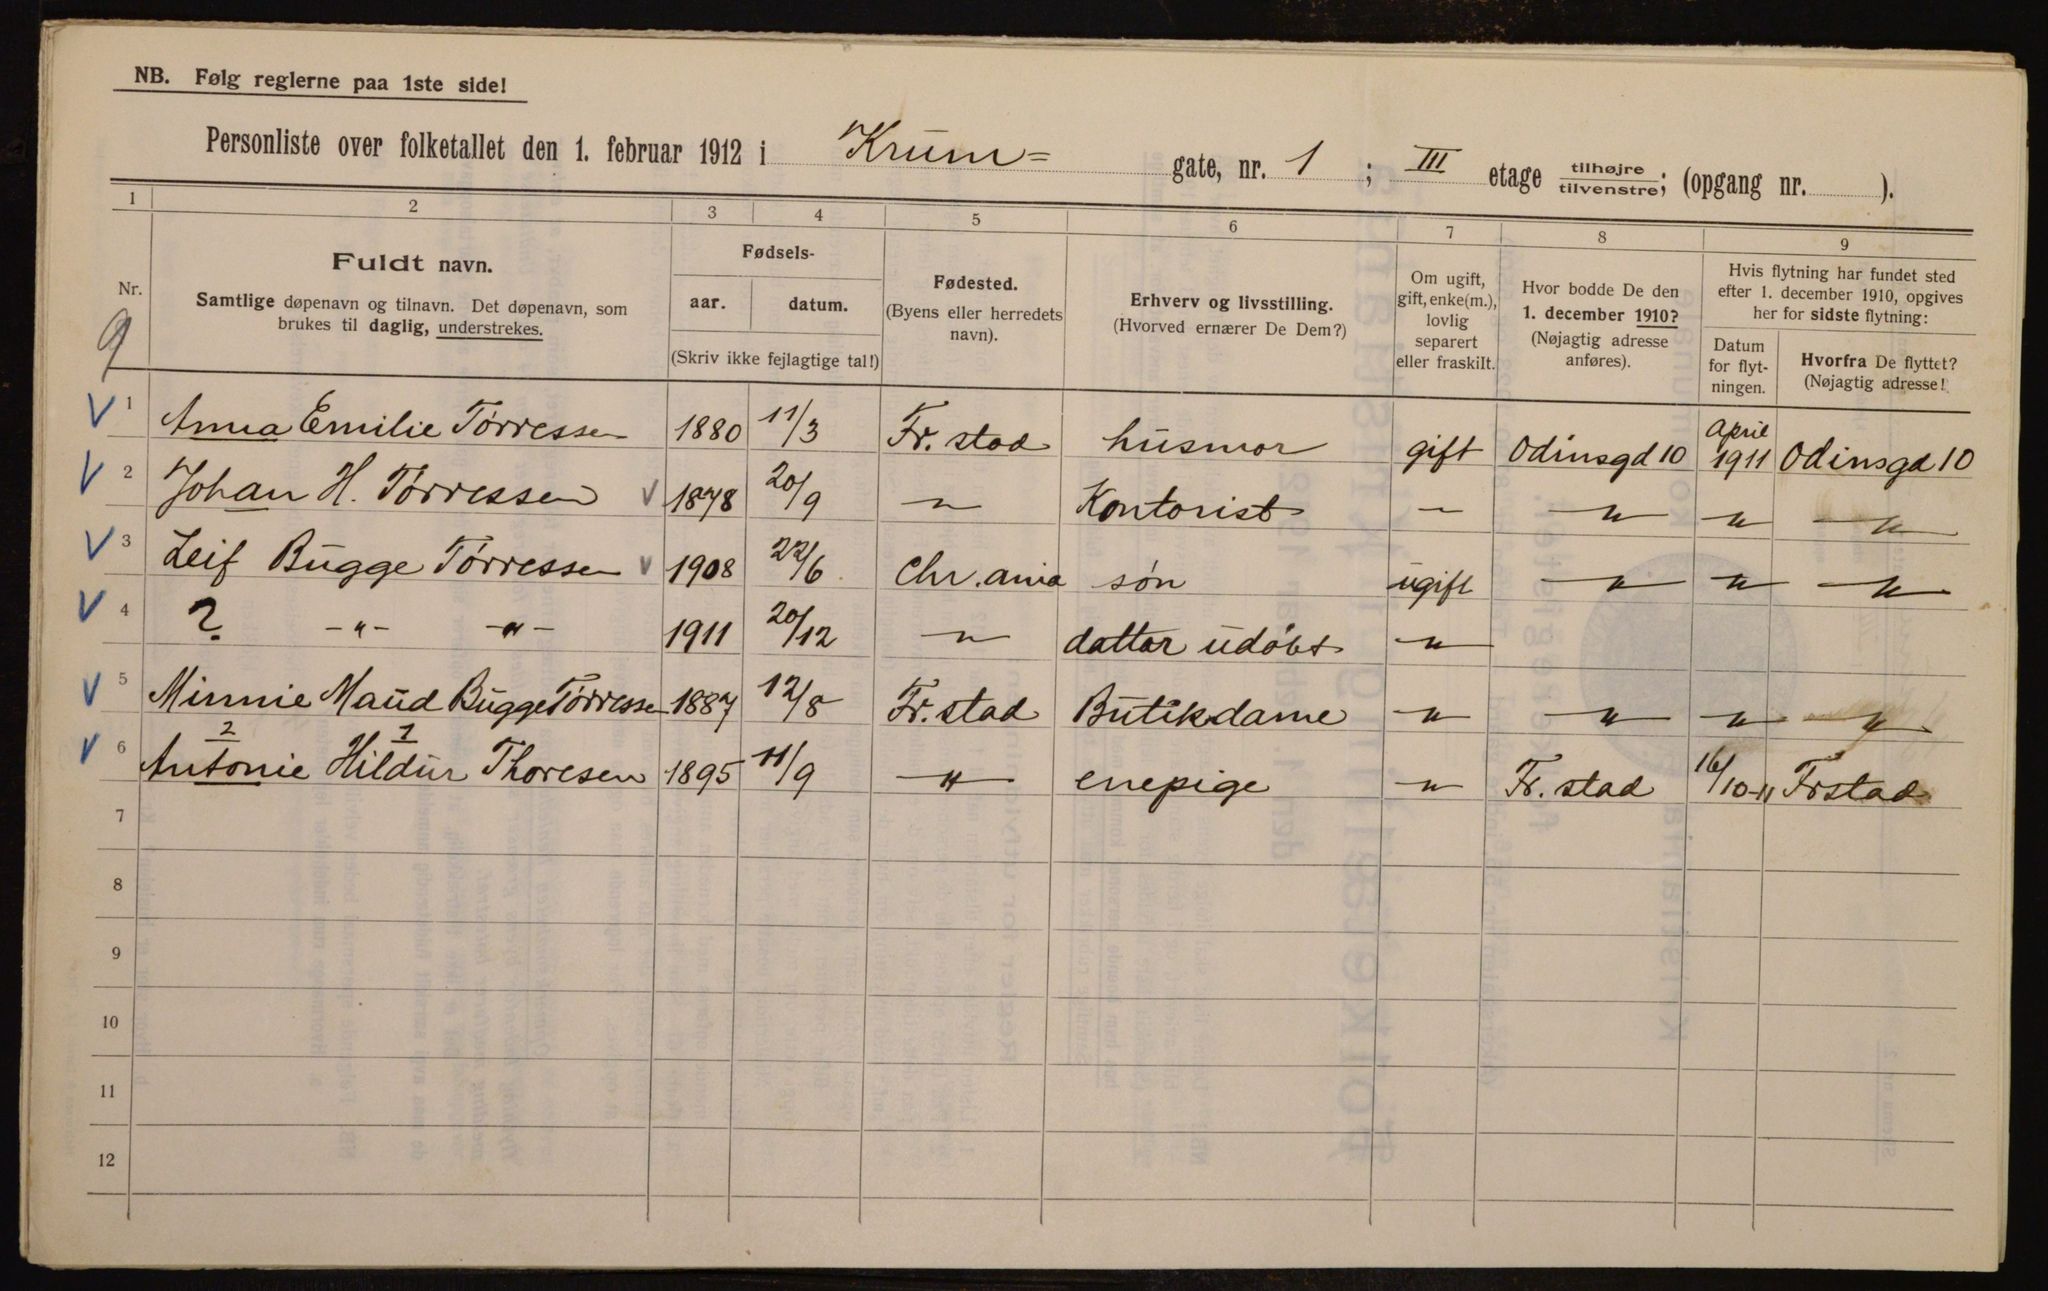 NB. Følg reglerne paa 1ste side!
Personliste over folketallet den 1. februar 1912 i Krum= gate, nr. 1 ; III etage tilhøjre/tilvenstre; (opgang nr. ).
1 2 3 4 5 6 7 8 9
Nr.
9
Fuldt navn.
Samtlige døpenavn og tilnavn. Det døpenavn, som
brukes til daglig, understrekes.
Fødsels-
aar. datum.
(Skriv ikke fejlagtige tal!)
Fødested.
(Byens eller herredets
navn).
Erhverv og livsstilling.
(Hvorved ernærer De Dem?)
Om ugift,
gift, enke(m.),
lovlig
separert
eller fraskilt.
Hvor bodde De den
1. december 1910?
(Nøjagtig adresse
anføres).
Hvis flytning har fundet sted
efter 1. december 1910, opgives
her for sidste flytning:
Datum
for flyt-
ningen.
Hvorfra De flyttet?
(Nøjagtig adresse!
V 1 Anna Emilie Tørressen 1880 11/3 Fr. stad husmor gift Odinsgd 10 April 1911 Odinsgd 10
V 2 Johan H. Tørressen V 1878 20/9 " Kontorist - " " "
V 3 Leif Bugge Tørressen V 1908 22/6 Chr. ania søn ugift " " "
V 4 ? -"- -"- 1911 20/12 " dattar udøbt "
V 5 Minnie Maud Bugge Tørressen 1887 12/8 Fr. stad Butikdame " " " "
2 1
V 6 Antonie Hildur Thoresen 1895 11/9 " enepige " Fr. stad 16/10-11 Frstad
7
8
9
10
11
12